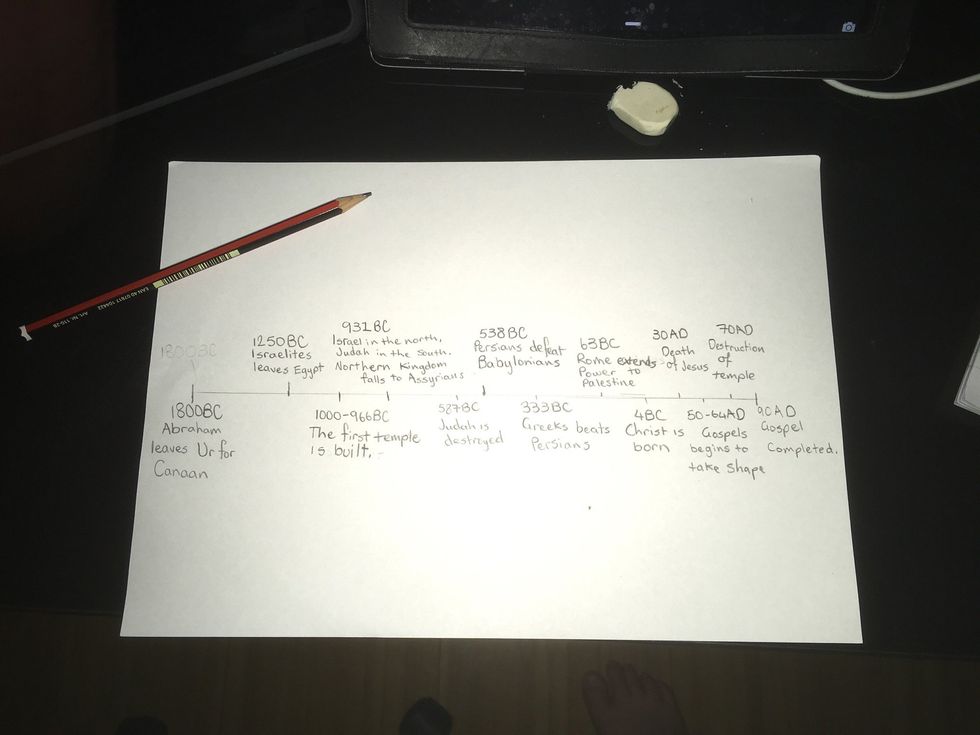 EAN 40 07817 104422 Art. Nr. 110-2B
1800BC
1250BC
Israelites
leaves Egypt
931BC
Israel in the north,
Judah in the South.
Northern Kingdom
falls to Assyrians
538BC
Persians defeat
Babylonians
63BC
Rome extends
Power to
Palestine
30AD
Death
of Jesus
70AD
Destruction
of
temple
1800BC
Abraham
leaves Ur for
Canaan
1000-966BC
The first temple
is built.
587BC
Judah is
destroyed
333BC
Greeks beats
Persians
4BC
Christ is
born
50-64AD
Gospels
begins to
take shape
90AD
Gospel
Completed.